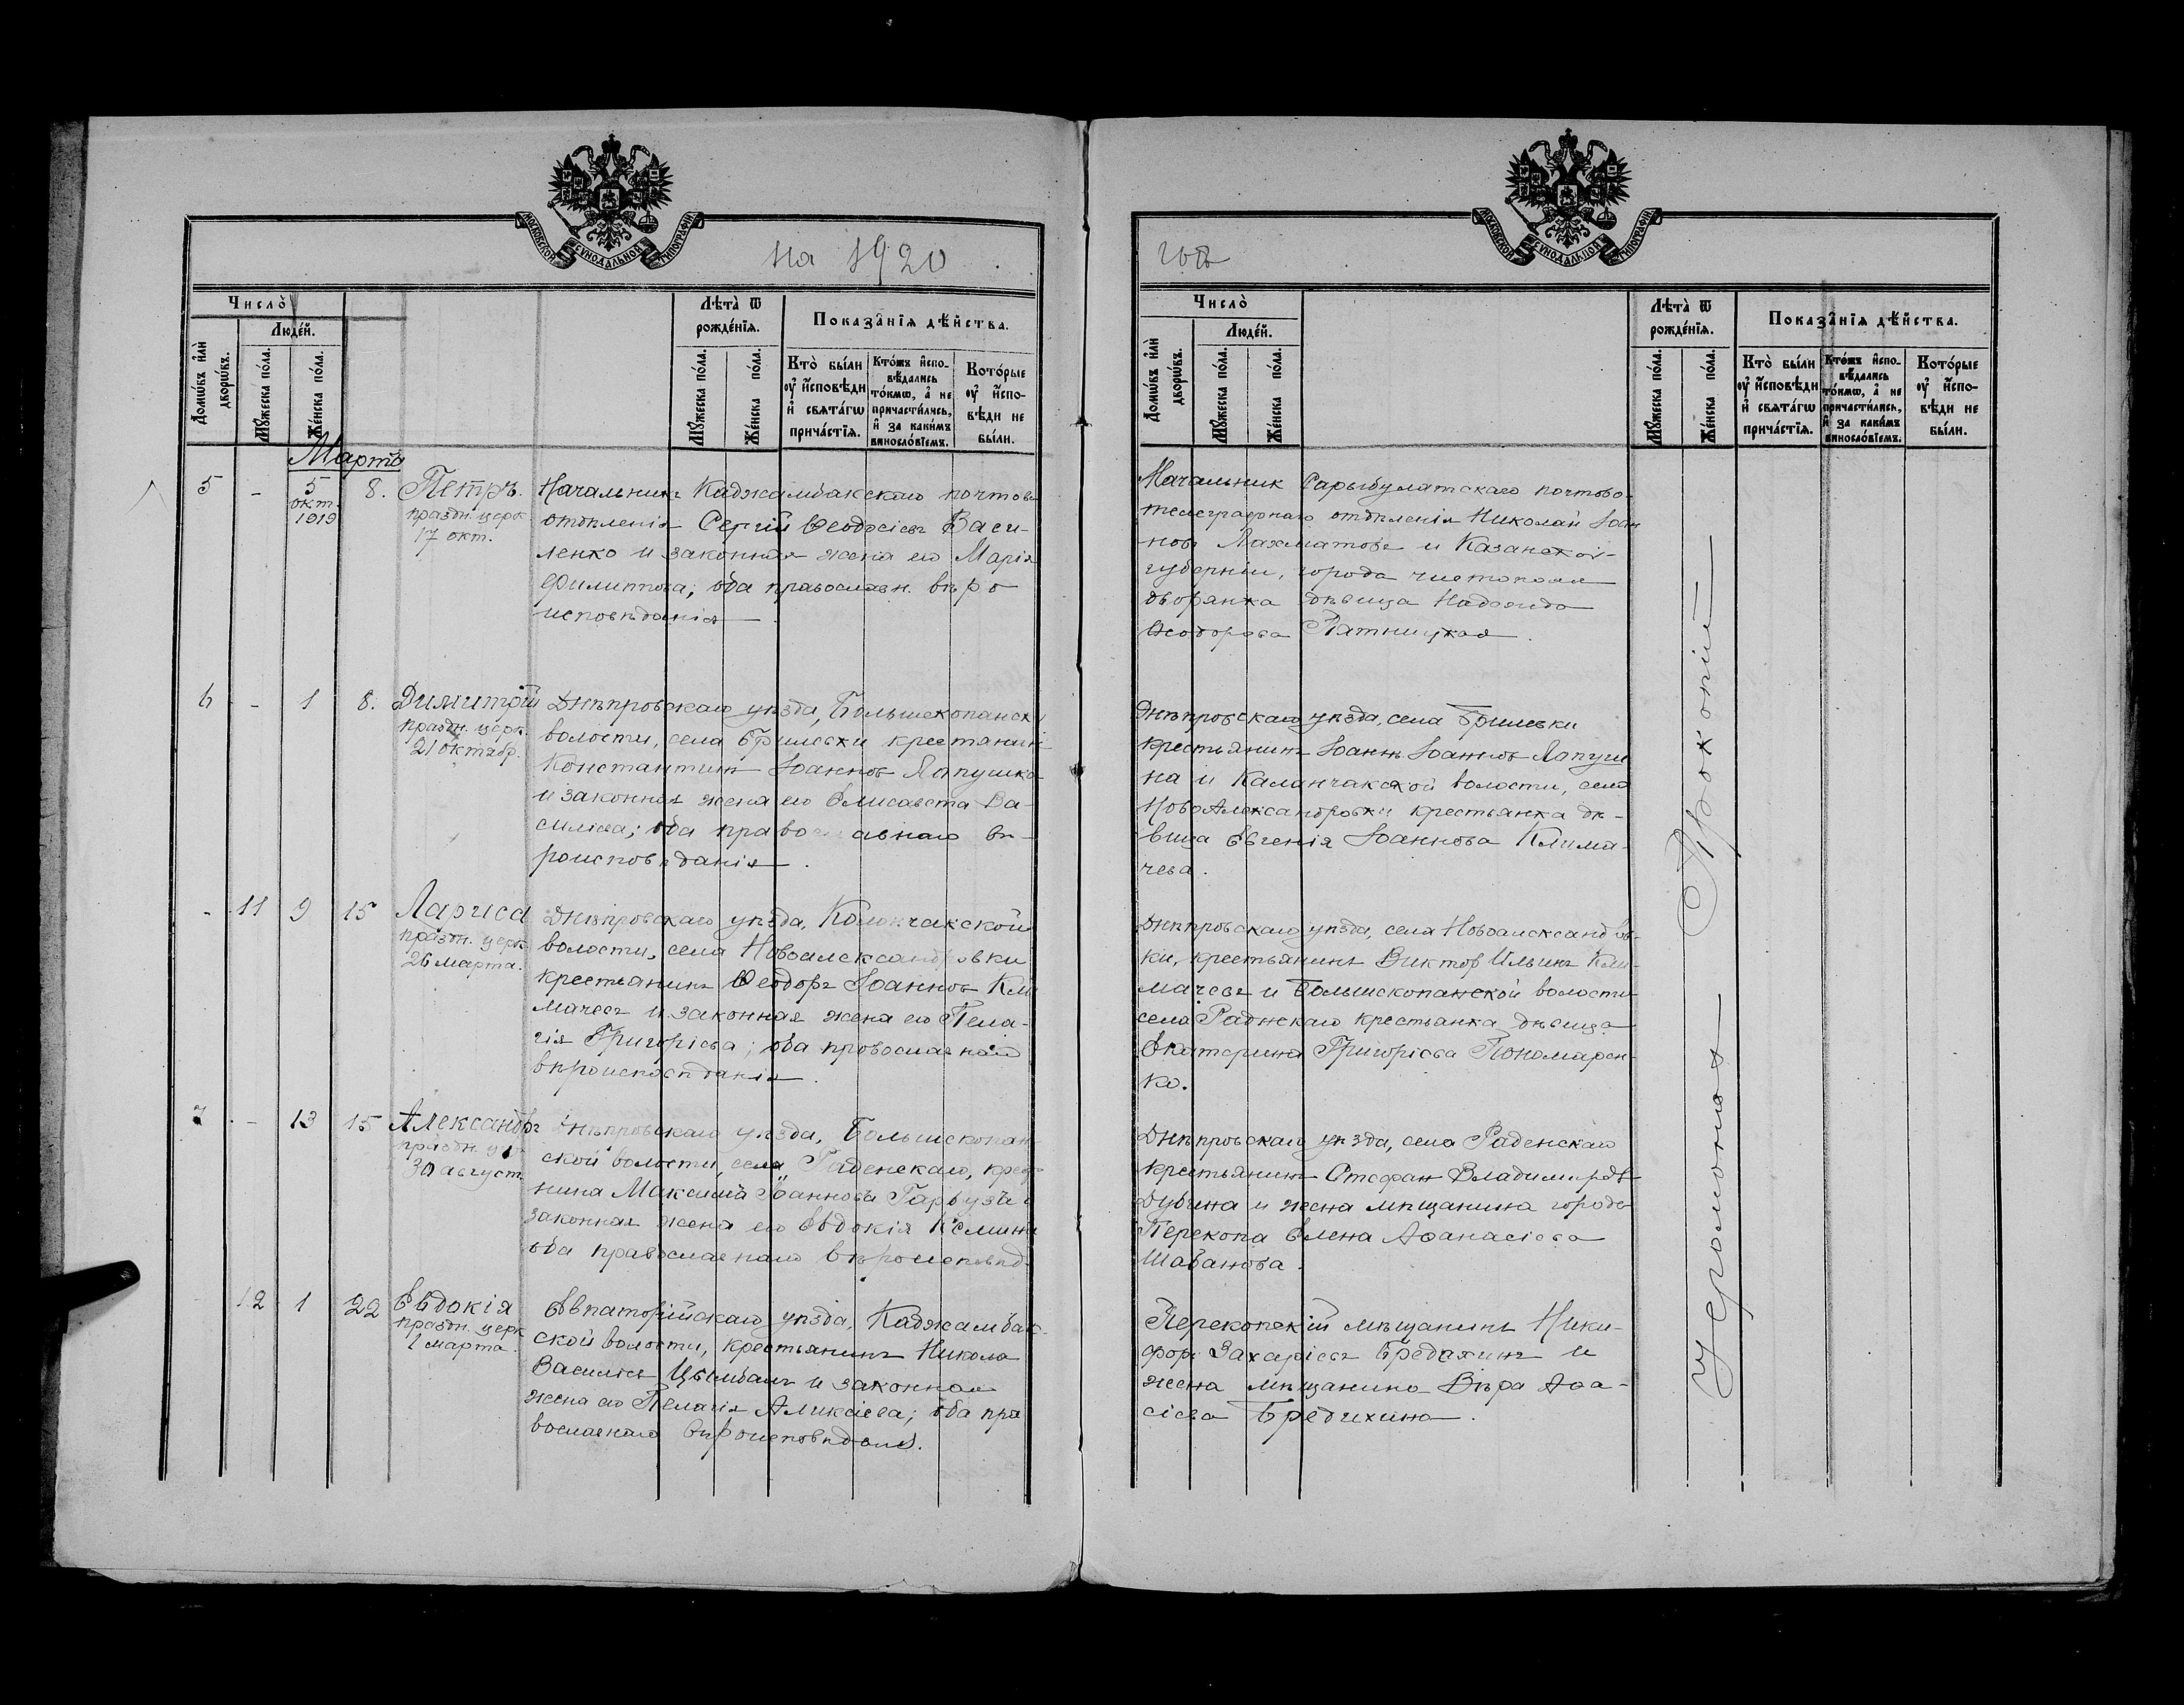 МОСКОВСКОЙ СѴНОДАЛЬНОЙ ТИПОГРАФІИ
на 1920
Число̀
Людéй.
Домѡ́въ и҆лѝ дворѡ́въ.
Мꙋ́жеска по́ла.
Же́нска по́ла.
Лѣ́та ѿ рожде́нїѧ.
Мꙋ́жеска по́ла.
Же́нска по́ла.
Показа̑нїѧ дѣ́йства.
Кто̀ бы́ли ᲂу҆ и҆сповѣ́ди и҆ свѧта́гѡ прича́стїѧ.
Кто́жъ и҆сповѣ́дались то́кмѡ, а҆ не причасти́лись, и҆ за каки́мъ виносло́вїемъ.
Кото́рые ᲂу҆ и҆сповѣ́ди не бы́ли.
Мартъ
5 - 5 окт. 1919 8. Петръ.
праздн. церк.
17 окт.
Начальникъ Каджамбакскаго почтов.
отдѣленія Сергій Ѳеодосіевъ Васи-
ленко и законная жена его Марія
Филиппова; оба православн. вѣро
исповѣданія.
6 - 1 8. Димитрій
праздн. церк.
21 октябр.
Днѣпровскаго уѣзда, Большекопанск
волости, села Брилевки крестянинъ
Константинъ Іоанновъ Лапушка
и законная жена его Елисавета Ва-
силіева; оба православнаго вѣ-
роисповѣданія.
- 11 9 15 Лариса
праздн. церк.
26 марта.
Днѣпровскаго уѣзда, Колончакской
волости, села Новоалександровки
крестьянинъ Ѳеодоръ Іоанновъ Кли
мачевъ и законная жена его Пела-
гія Григоріева; оба православнаго
вѣроисповѣданія.
7 - 13 15 Александръ
праздн. це
30 август.
Днѣпровскаго уѣзда, Большекопан
ской волости, села Раденскаго, крес
нина Максима Іоаннова Гарбузъ и
законная жена его Евдокія
оба православнаго вѣроисповѣд.
12 1 22 Евдокія
праздн. церк
1 марта.
Евпаторійскаго уѣзда, Каджамбак-
ской волости, крестьянинъ Никола
Василіевъ Цымбалъ и законная
жена его Пелагія Аликсіева; оба пра
вославнаго вѣроисповѣданія.
МОСКОВСКОЙ СѴНОДАЛЬНОЙ ТИПОГРАФІИ
годъ
Число̀
Людéй.
Домѡ́въ и҆лѝ дворѡ́въ.
Мꙋ́жеска по́ла.
Же́нска по́ла.
Лѣ́та ѿ рожде́нїѧ.
Мꙋ́жеска по́ла.
Же́нска по́ла.
Показа̑нїѧ дѣ́йства.
Кто̀ бы́ли ᲂу҆ и҆сповѣ́ди и҆ свѧта́гѡ прича́стїѧ.
Кто́жъ и҆сповѣ́дались то́кмѡ, а҆ не причасти́лись, и҆ за каки́мъ виносло́вїемъ.
Кото́рые ᲂу҆ и҆сповѣ́ди не бы́ли.
Начальник Сарыбулатскаго почтово-
телеграфнаго отдѣленія Николай Іоан
новъ Лахматовъ и Казанской
губерніи, города Чистополя
дворянка дѣвица Надежда
Ѳеодорова Пятницкая.
Днѣпровскаго уѣзда, села Брилевки
крестьянинъ Іоаннъ Іоанновъ Лапуш
на и Каланчакской волости, села
НовоАлександровки крестьянка дѣ-
вица Евгенія Іоаннова Клима-
чева.
Днѣпровскаго уѣзда, села Новоалександров-
ки, крестьянинъ Викторъ Ильинъ Кли-
мачевъ и Большекопанской волости
села Раднскаго крестьянка дѣвица
Екатерина Григоріева Пономарен-
ко.
Днѣпровскаго уѣзда, села Раденскаго
крестьянинъ Стефан Владимировъ
Дубина и жена мѣщанина города
Перекопа Елена Аѳанасіева
Шабанова.
Перекопскій мѣщанинъ Ники-
форъ Захаріевъ Бредихинъ и
жена мѣщанина Вѣра Аѳа-
сіева Бредихина.
Іеромонахъ Прокопій